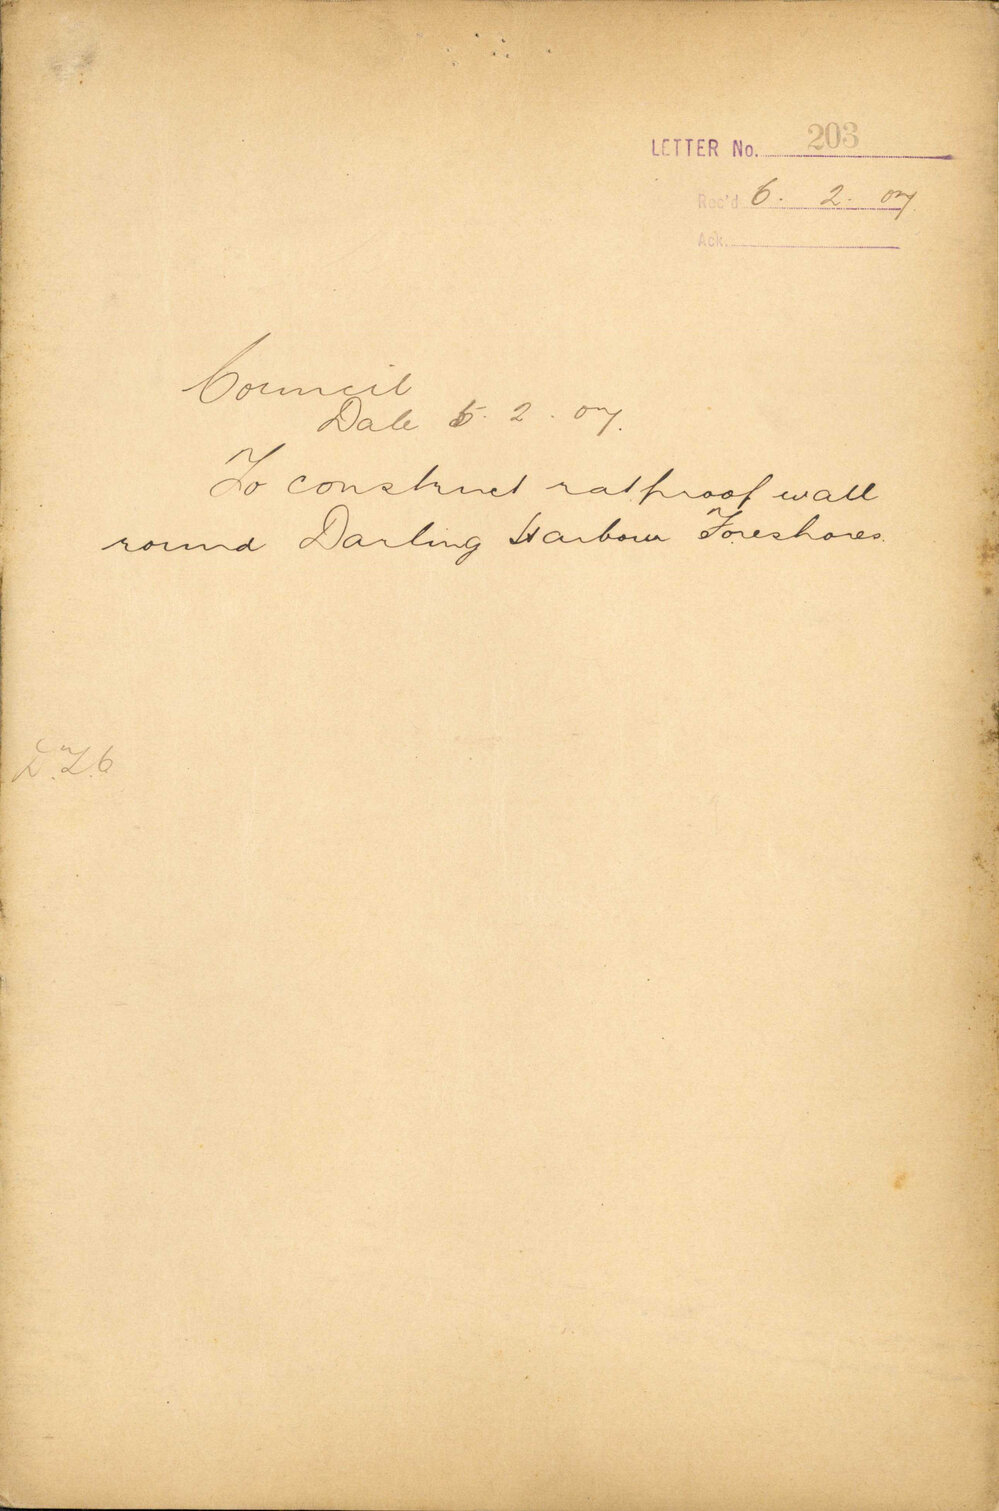 LETTER No. 203
Rec'd 6. 2. 07.
Ack.
Council
Date 5. 2. 07.
To construct ratproof wall
round Darling Harbour Foreshores.